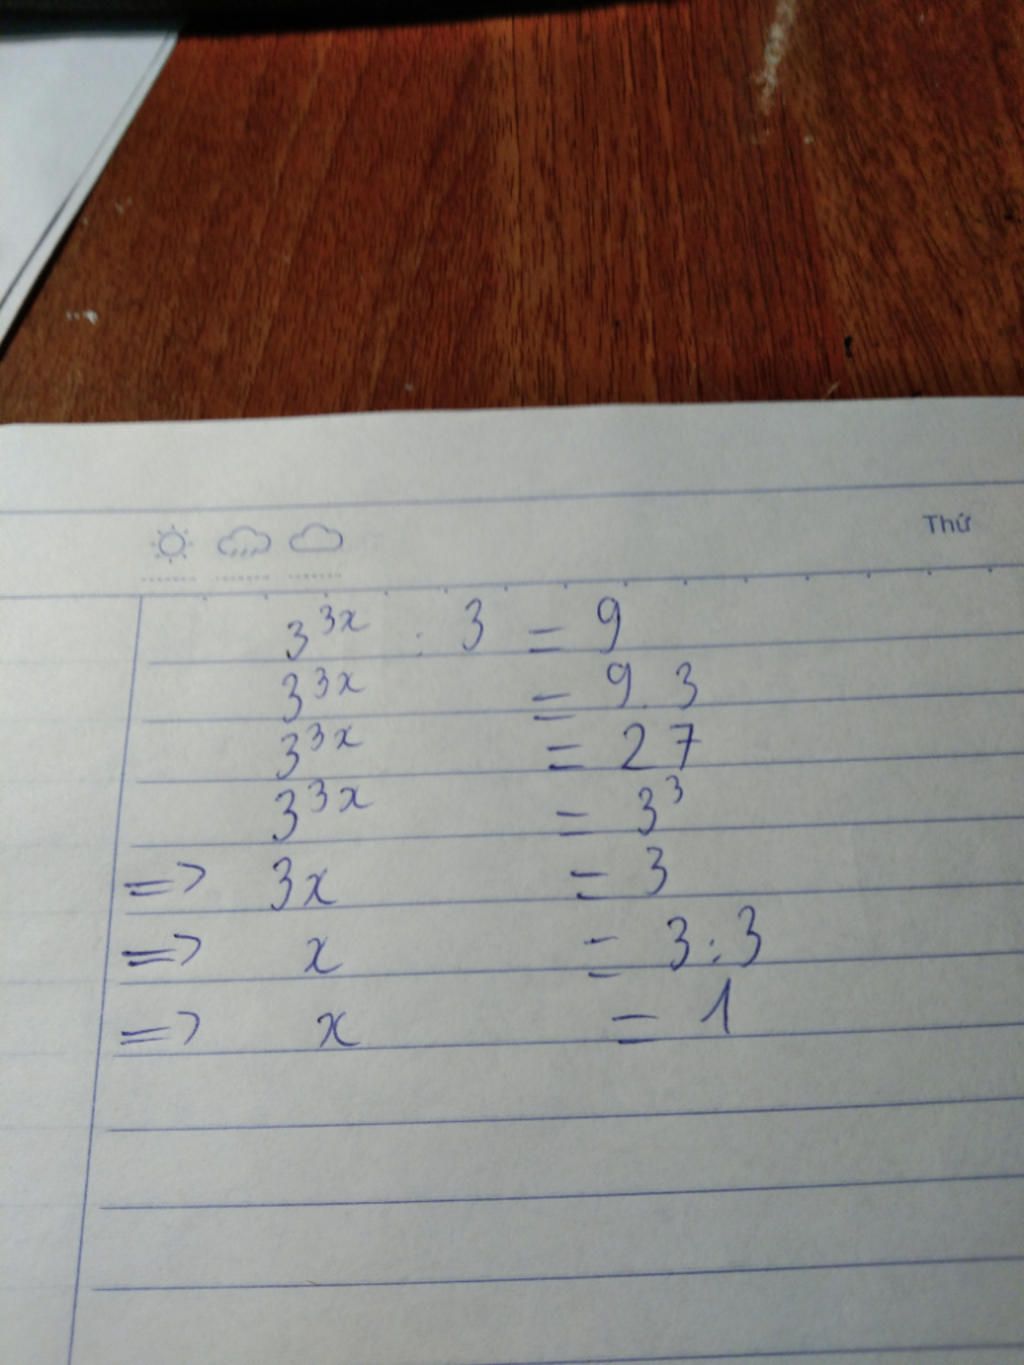 Thứ
3^{3x} : 3 = 9
3^{3x} = 9.3
3^{3x} = 27
3^{3x} = 3^3
=> 3x = 3
=> x = 3:3
=> x = 1